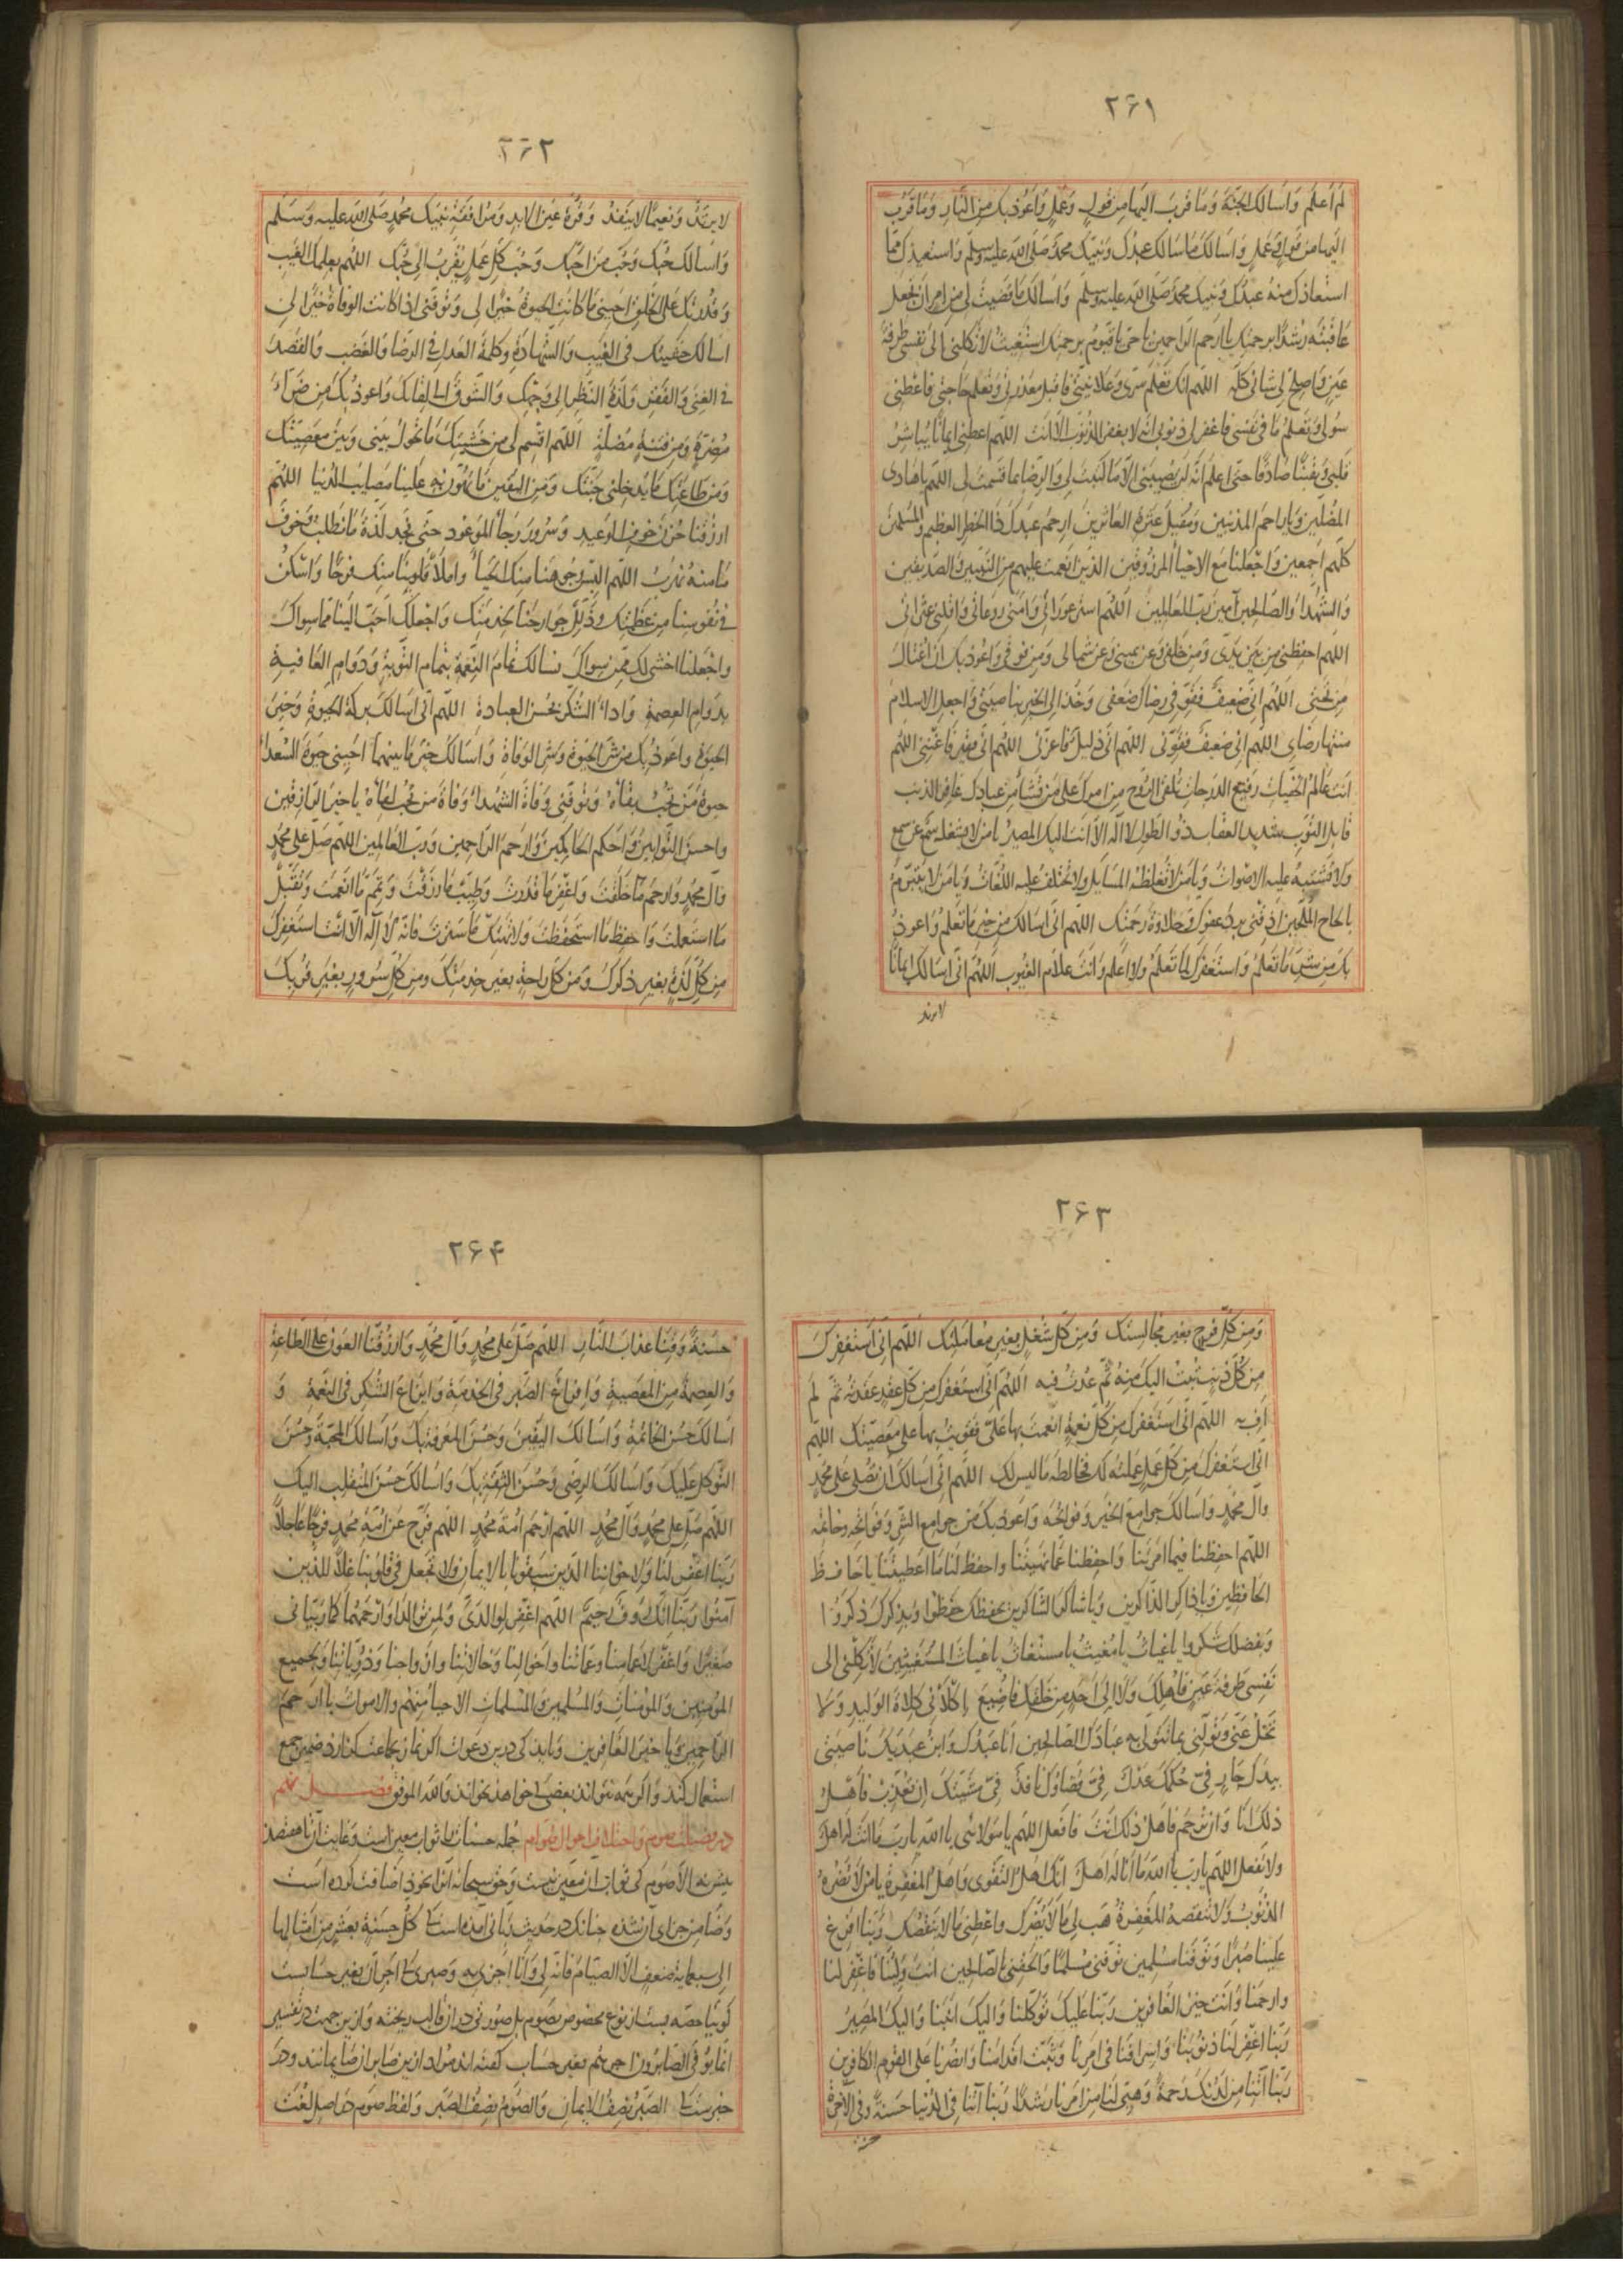 ۲۶۱
لم اعلم وَاَسَالك الجنّة وَمَا قربَ اليهَا من قولٍ وَعَملٍ وَاَعُوذ بكَ مِنَ النَّارِ وَمَا قرب
اليهَا من قولٍ وَعَملٍ وَاَسَالكَ مَا سَالك عبدك وَنبيّك محمّد صَلى الله عليه وَسلم وَاستعيذك ممّا
استعاذك منهُ عبدُك وَنبيك محمّد صَلى الله عليه وَسلم وَاسَالك مَا قضيتَ لى من امرٍ ان تجعل
عَاقبتَه رشدًا برحمتِك يا ارحم الراحمين يا حىّ يا قيوم برحمتِك استغيث لا تكلنى الى نفسى طرفة
عَينٍ وَاصلح لى شانى كلّه اللهم انك تعلم سرّى وَعَلانيتى فاقبل معذرتى وَتعلم حَاجتى فاعطنى
سُولى وَتعلمُ ما فى نفسى فاغفر لى ذنوبى انّه لا يغفر الذنوبَ الّا انت اللهم اعطنى ايمانًا يُباشِرُ
قلبى وَيقينًا صَادقًا حتى اعلمَ انّه لن يصيبنى الّا ما كتبتَ لى وَالرِّضا بما قسمتَ لى اللهم يا هَادى
المضلّين وَيا راحمَ المذنبين وَمُقيل عثرة العَاثرينَ ارحم عبدكَ ذا الخطر العظيم وَالمسلمينَ
كلّهم اَجمعين وَاجعلنا مع الاحياء المرزُوقين الذين انعمت عليهم من النبيين وَالصّديقين
وَالشّهدآء وَالصّالحين آمين ربّ العالمين اللهم استر عورَاتى وَآمن روعاتى وَاقلنى عثراتى
اللهم احفظنى من بين يَدَىّ وَمن خلفى وَعن يمينى وَعن شمالى وَمن فوقى وَاعُوذ بك ان اغتال
من تحتى اللهم انى ضعيفٌ فقوّ فى رضاك ضَعفى وَخذ الى الخير بناصيتى وَاجعل الاسلام
منتها رضاى اللهم انى ضعيف فقَوّنى اللهم انى ذليل فاعزّنى اللهم انى فقير فاغننى اللهم
انت عَالم الخفيّات رفيع الدّرجات تلقى الروح من امرك على من تشاء من عبادك غافر الذنب
قابل التّوب شديد العقاب ذُو الطول لا اله الّا انت اليك المصير يا من لا يشغله سمع عن سمع
وَلا تشتبه عليه الاصوات وَيا من لا تغلّطه المسَايل وَلا تختلف عليه اللغات وَيا من لا يتبرّم
بالحاح الملحّين اذقنى برد عفوك وَحلاوة رحمتك اللهم انى اسَالك من خير ما تعلم وَاعوذ
بك من شرّ ما تعلم وَاستغفرك لما تعلم وَلا اعلم وَانت علّام الغيوب اللهم انى اسَالك ايمانًا
لا يرتد
۲۶۲
لا يرتدّ وَنعيمًا لا ينفد وَقرّة عين الابدِ وَمُرافقة نبيّك محمّدٍ صَلى الله عليه وَسَلم
وَاسَالك حُبّك وَحُبّ من احبّك وَحُبّ كلّ عملٍ يُقرّبُ الى حُبّك اللهم بعلمك الغيب
وَقدرتك على الخلق احينى مَا كانت الحيوة خيرًا لى وَتوفّنى اذا كانت الوفاة خيرًا لى
اسَالك خشيتك فى الغيب وَالشّهادة وكلمة العَدل فى الرضَا وَالغضب وَالقصدَ
فى الغنى وَالفقر وَلذّة النّظر الى وَجهك وَالشّوق الى لقائك وَاعوذ بك من ضرّآء
مُضرّةٍ وَمن فتنةٍ مضلّةٍ اللهم اقسم لى من خشيتك مَا تحول بينى وَبين معصيتك
وَمن طَاعتك مَا يُدخلنى جنّتك وَمن اليقين مَا تهوّن به علينا مصَايب الدّنيا اللهم
ارزقنا حُزن خوف الوعيد وَسُرور رجآء الموعُود حتى نجد لذّة مَا نطلب وَخوف
مَا منهُ نهرُب اللهم البس وجوهنا منك الحيآء وَاملأ قلوبنا منك فرحًا وَاسْكن
فى نفوسنا من عظمتك وَذلّل جوارحنا لخدمتك وَاجعلك احبّ الينا ممّا سواك
وَاجعلنا اخشى لك ممّن سواك نسالك تمام النّعمة بتمام التّوبة وَدوام العَافية
بدوام العصمة وَادآء الشّكر بحُسن العبادة اللهم انى اسَالك بركة الحيوة وَخير
الحيوة وَاعوذ بك من شرّ الحيوة وَشرّ الوَفاة وَاسَالك خير مَا بينهما احينى حيوة السّعدآء
حيوة من تحبّ بقآءهُ وَتوفّنى وَفاة الشهدآء وَفاة من تحبّ لقآءهُ يا خير الرازقين
وَاحسن التّوابين وَاحكم الحاكمين وَارحم الراحمين وَربّ العالمين اللهم صَلّ على محمّدٍ
وَآل محمّدٍ وَارحم مَا خلقتَ وَاغفر مَا قدرت وَطيّب مَا رزقتَ وَتمّم مَا انعمتَ وَتقبّل
مَا استعملتَ وَاحفظ مَا استحفظتَ وَلا تهتك مَا سَترتَ فانّه لا اله الّا انت استغفرك
من كلّ لذّةٍ بغير ذكرك وَمن كلّ راحةٍ بغير خدمتك وَمن كلّ سُرور بغير قُربك
۲۶۳
وَمن كلّ فرحٍ بغير مجالستك وَمن كلّ شغلٍ بغير معاملتك اللهم انى استغفرك
من كلّ ذنبٍ تبت اليك منهُ ثمّ عُدتُ فيه اللهم انى استغفرك من كلّ عقدٍ عقدته ثمّ لم
اَفِ به اللهم انى استغفرك من كلّ نعمةٍ انعمتَ بها علىّ فقويتُ بها على معصيتك اللهم
انى استغفرك من كلّ عملٍ عملته لك فخالطه مَا ليس لك اللهم انى اسَالك ان تصلّى على محمّدٍ
وآل محمّدٍ وَاسَالك جوامع الخير وَفواتحه وَاعوذ بك من جوامع الشرّ وَفواتحه وَخاتمه
اللهم احفظنا فيما امرتنا وَاحفظنا عمّا نهيتنا واحفظ لنا مَا اعطيتنا يا حافظ
الحَافظين وَيا ذاكر الذّاكرين وَيا شاكر الشّاكرين بحفظك حفظوا وَبذكرك ذكروا
وَبفضلك شكروا يا غياث يا مُغيث يا مستغاث يا غياث المستغيثين لا تكلنى الى
نفسى طرفة عينٍ فاهلك وَلا الى احدٍ من خلقك فاضيع اكلأنى كلاءة الوليد وَلا
تخلّ عنّى وَتولّنى بما تتولى به عبادك الصّالحين انا عبدك وَابن عبديك ناصيتى
بيدك جارٍ فىّ حكمك عدلٌ فىّ قضاؤك نافذٌ فىّ مشيّتك ان تعذّب فاهلُ
ذلك انا وَان ترحم فاهل ذلك انت فافعل اللهم يا مولائى يا الله يا ربّ مَا انت له اهلٌ
وَلا تفعل اللهم يا ربّ يا الله مَا انا له اهل انّك اهل التّقوى وَاهل المغفرة يا من لا تضرّه
الذنوب وَلا تنقصه المغفرة هب لى مَا لا يضرّك وَاعطنى مَا لا ينقصك ربّنا افرغ
علينا صَبرًا وَتوفّنا مسلمين توفّنى مسلمًا وَالحقنى بالصّالحين انت وَليّنا فاغفر لنا
وارحمنا وَانت خير الغافرين ربّنا عليك توكّلنا وَاليك انبنا وَاليك المصير
ربّنا اغفر لنا ذنوبنا وَاسرافنا فى امرنا وَثبّت اقدامنا وَانصرنا على القوم الكافرين
ربّنا آتنا من لدنك رحمةً وَهيّئ لنا من امرنا رشدًا ربّنا آتنا فى الدّنيا حسنةً وفى الآخرة
حسنة
۲۶۴
حسنةً وَقنا عذاب النّار اللهم صَلّ على محمّدٍ وَآل محمّدٍ وَارزقنا العون على الطاعة
وَالعصمة من المعصية وَافراغ الصّبر فى الخدمة وَايزاع الشّكر فى النّعمة وَ
اسَالك حسن الخاتمة وَاسَالك اليقين وَحسن المعرفة بك وَاسَالك المحبّة وَحُسن
التّوكل عليك وَاسَالك الرضى وَحُسن الثقة بك وَاسَالك حسن المنقلب اليك
اللهم صَلّ على محمّدٍ وَآل محمّدٍ اللهم ارحم امّة محمّدٍ اللهم فرّج عن امّة محمّدٍ فرجًا عاجلًا
ربّنا اغفر لنا وَلاخواننا الّذين سبقونا بالايمان وَلا تجعل فى قلوبنا غلًّا للذين
آمنوا ربّنا انّك رؤف رحيم اللهم اغفر لى وَلوالدىّ وَلمن توالدا وَارحمهما كما ربّيانى
صغيرًا وَاغفر لاعمامنا وعمّاتنا وَاخوالنا وَخالاتنا وازواجنا وَذريّاتنا وَلجميع
المؤمنين وَالمؤمنات وَالمسلمين وَالمسلمات الاحيآء منهم وَالاموات يا ارحم
الراحمين وَيا خير الغافرين وَبايد كى درين دعوات اكر نماز بجماعت كزارد ضمير جمع
استعمال كند وَاكر همه نتواند بعضى خواهد بخواند وَالله الموفق فصــل پنجم
در فضيلت صوم وَاختلاف احوال صوام جمله حسنات را ثواب معين است وَغايت آن تا هفتصد
بيش نه الّا صوم كى ثواب آن معين نيست وَحق سبحانه آنرا بخود اضافت كرده است
وَضامن جزاى آن شده چنانك در حديث ربّانى آمده است كه كلّ حسنة بعشر امثالها
الى سبعماية ضعف الّا الصيام فانّه لى وَانا اجزى به وَصبرى كه اجر آن بغير حسابست
كوئيا حصه يست از نوع مخصوص بصوم بل صورتى در آن قالب ريخته وَازين جهت در تفسير
انّما يوفّى الصّابرون اجرهم بغير حساب كفته اند مراد ازين صابران صايمانند وَدر
خبرست كه الصّبر نصف الايمان وَالصّوم نصف الصّبر وَلفظ صوم در اصل لغت